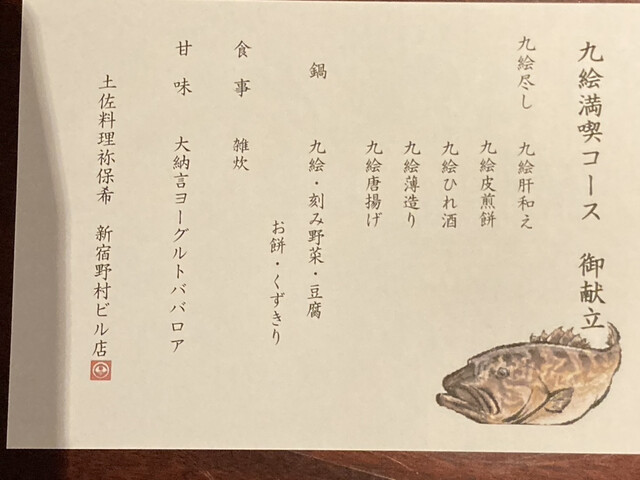 九絵満喫コース 御献立
九絵尽し 九絵肝和え
九絵皮煎餅
九絵ひれ酒
九絵薄造り
九絵唐揚げ
鍋 九絵・刻み野菜・豆腐
お餅・くずきり
食事 雑炊
甘味 大納言ヨーグルトババロア
土佐料理祢保希 新宿野村ビル店